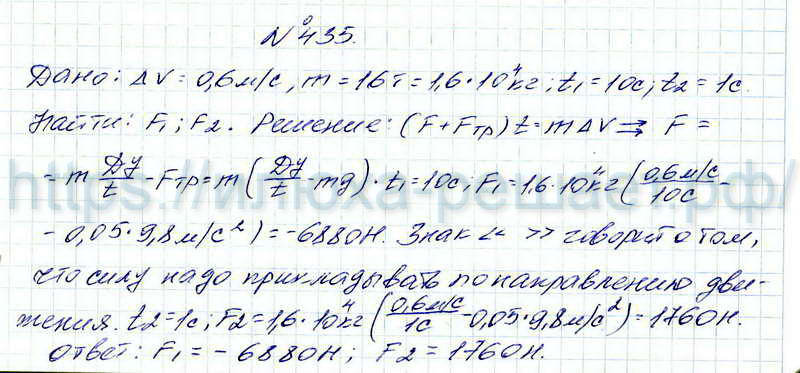 №435.
Дано: ΔV=0,6м/с, m=16т=1,6·10⁴кг; t₁=10с; t₂=1с.
Найти: F₁; F₂. Решение: (F+Fтр)t=mΔV ⇒ F=
=m Dy/t -Fтр=m(Dy/t -mg)·t₁=10с; F₁=1,6·10⁴кг(0,6м/с/10с -
- 0,05·9,8м/с²)=-6880Н. Знак « » говорит о том,
что силу надо прикладывать по направлению дви-
жения. t₂=1с; F₂=1,6·10⁴кг(0,6м/с/1с -0,05·9,8м/с²)=1760Н.
Ответ: F₁=-6880Н; F₂=1760Н.
https://илюха-решает.рф/